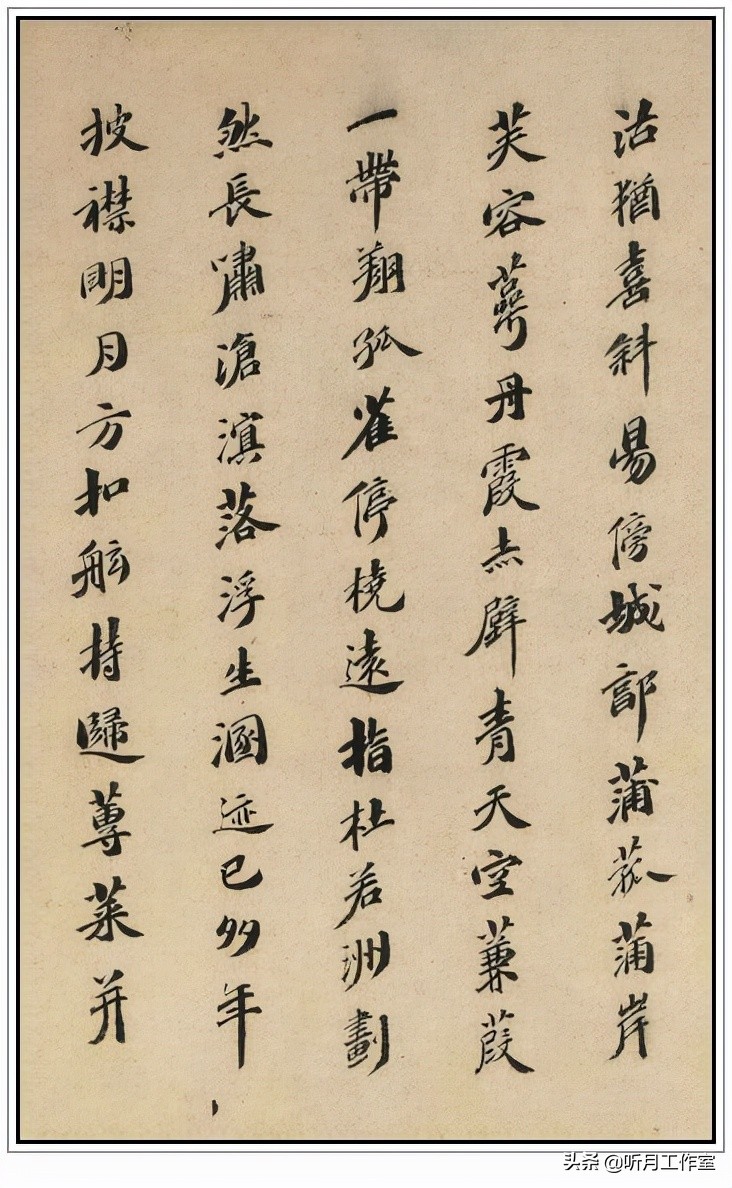 沽猶喜斜昜傍城郭蒲菰蒲岸
芙容萼丹霞赤壁青天空蒹葭
一帶翔孤雀停橈遠指杜若洲劃
然長嘯滄溟落浮生溷迹已多年
披襟明月方扣舷持歸蓴菜并
头条 @听月工作室